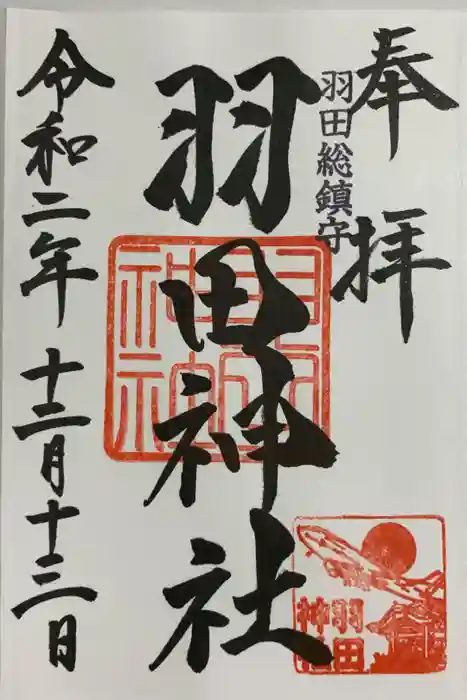 奉拝
羽田総鎮守
羽田神社
令和二年十二月十三日
羽田
神社
羽田
神社